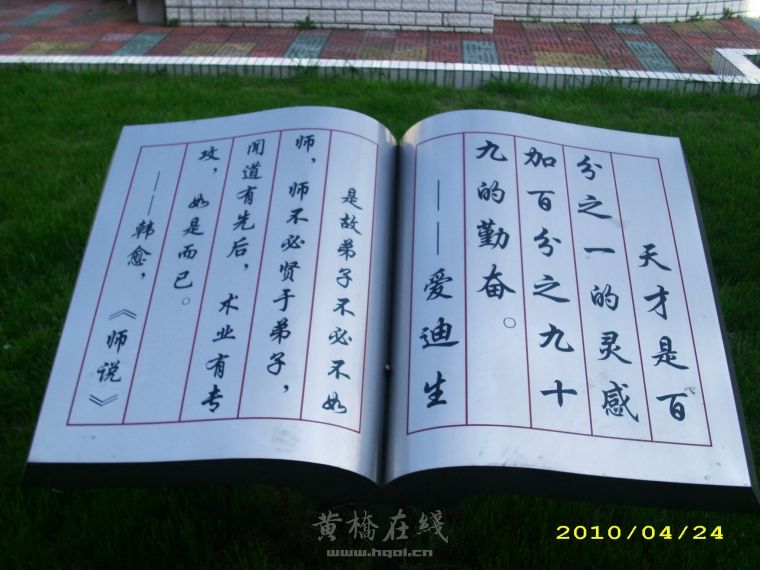 天才是百
分之一的灵感
加百分之九十
九的勤奋。
——爱迪生
是故弟子不必不如
师，师不必贤于弟子，
闻道有先后，术业有专
攻，如是而已。
——韩愈，《师说》
黄橋在綫
www.hqol.cn
2010/04/24